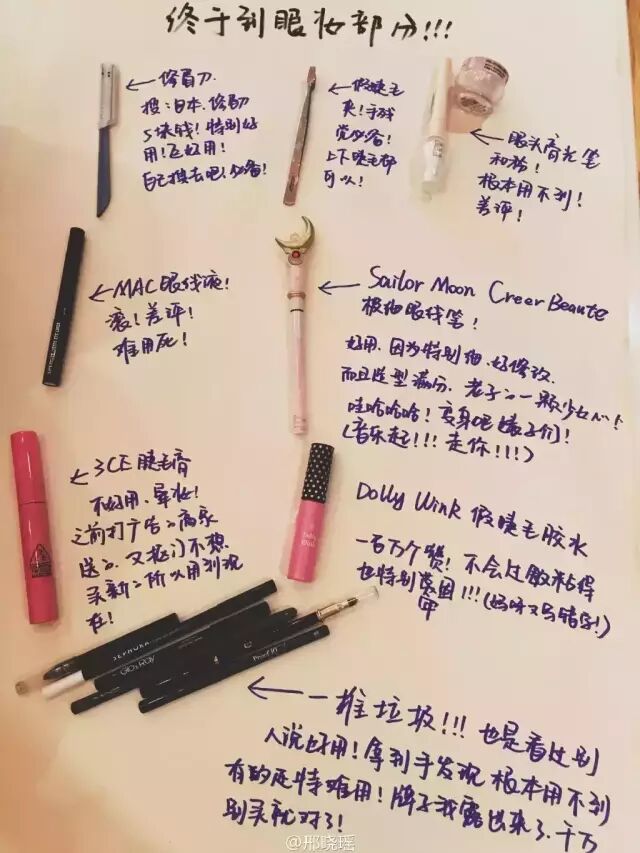 终于到眼妆部分!!!
修眉刀.
搜:日本.修眉刀
5块钱!特别好
用!巨好用!
自己搜去吧!必备!
假睫毛
夹!手残
党必备!
上下睫毛都
可以!
眼头高光笔
和粉!
根本用不到!
差评!
MAC眼线液!
滚!差评!
难用死!
Sailor Moon Creer Beaute
极细眼线笔!
好用.因为特别细.好修改.
而且造型满分.老子一颗少女心!
哇哈哈哈!变身吧妹子们!
(音乐起!!!走你!!!)
3CE睫毛膏
不好用.晕妆!
之前打广告商家
送.又抠门不想
买新所以用到现
在!
Dolly Wink 假睫毛胶水
一百万个赞!不会过敏粘得
也特别牢固!!!(妈呀又写错字!)
牢
Dolly
Wink
一堆垃圾!!!也是看过别
人说好用!拿到手发现根本用不到
有的还特难用!牌子我露出来了.千万
别买就对了!
@邢晓瑶